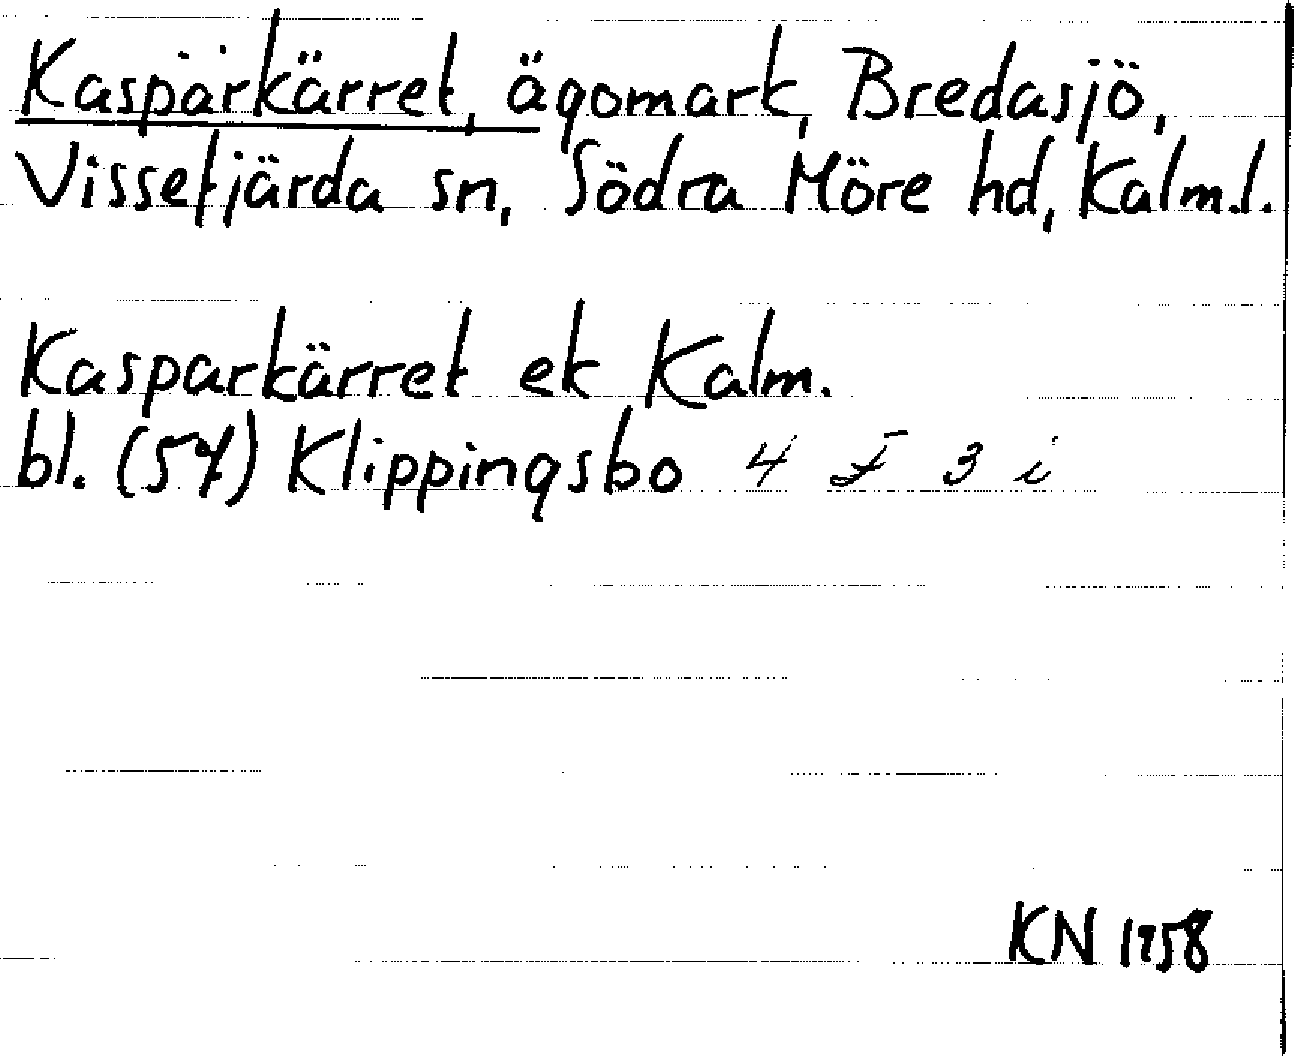 Kasparkärret, ägomark, Bredasjö,
Vissefjärda sn, Södra Möre hd, Kalm.l.
Kasparkärret ek Kalm.
bl. (57) Klippingsbo 4 F 3 i
KN 1958